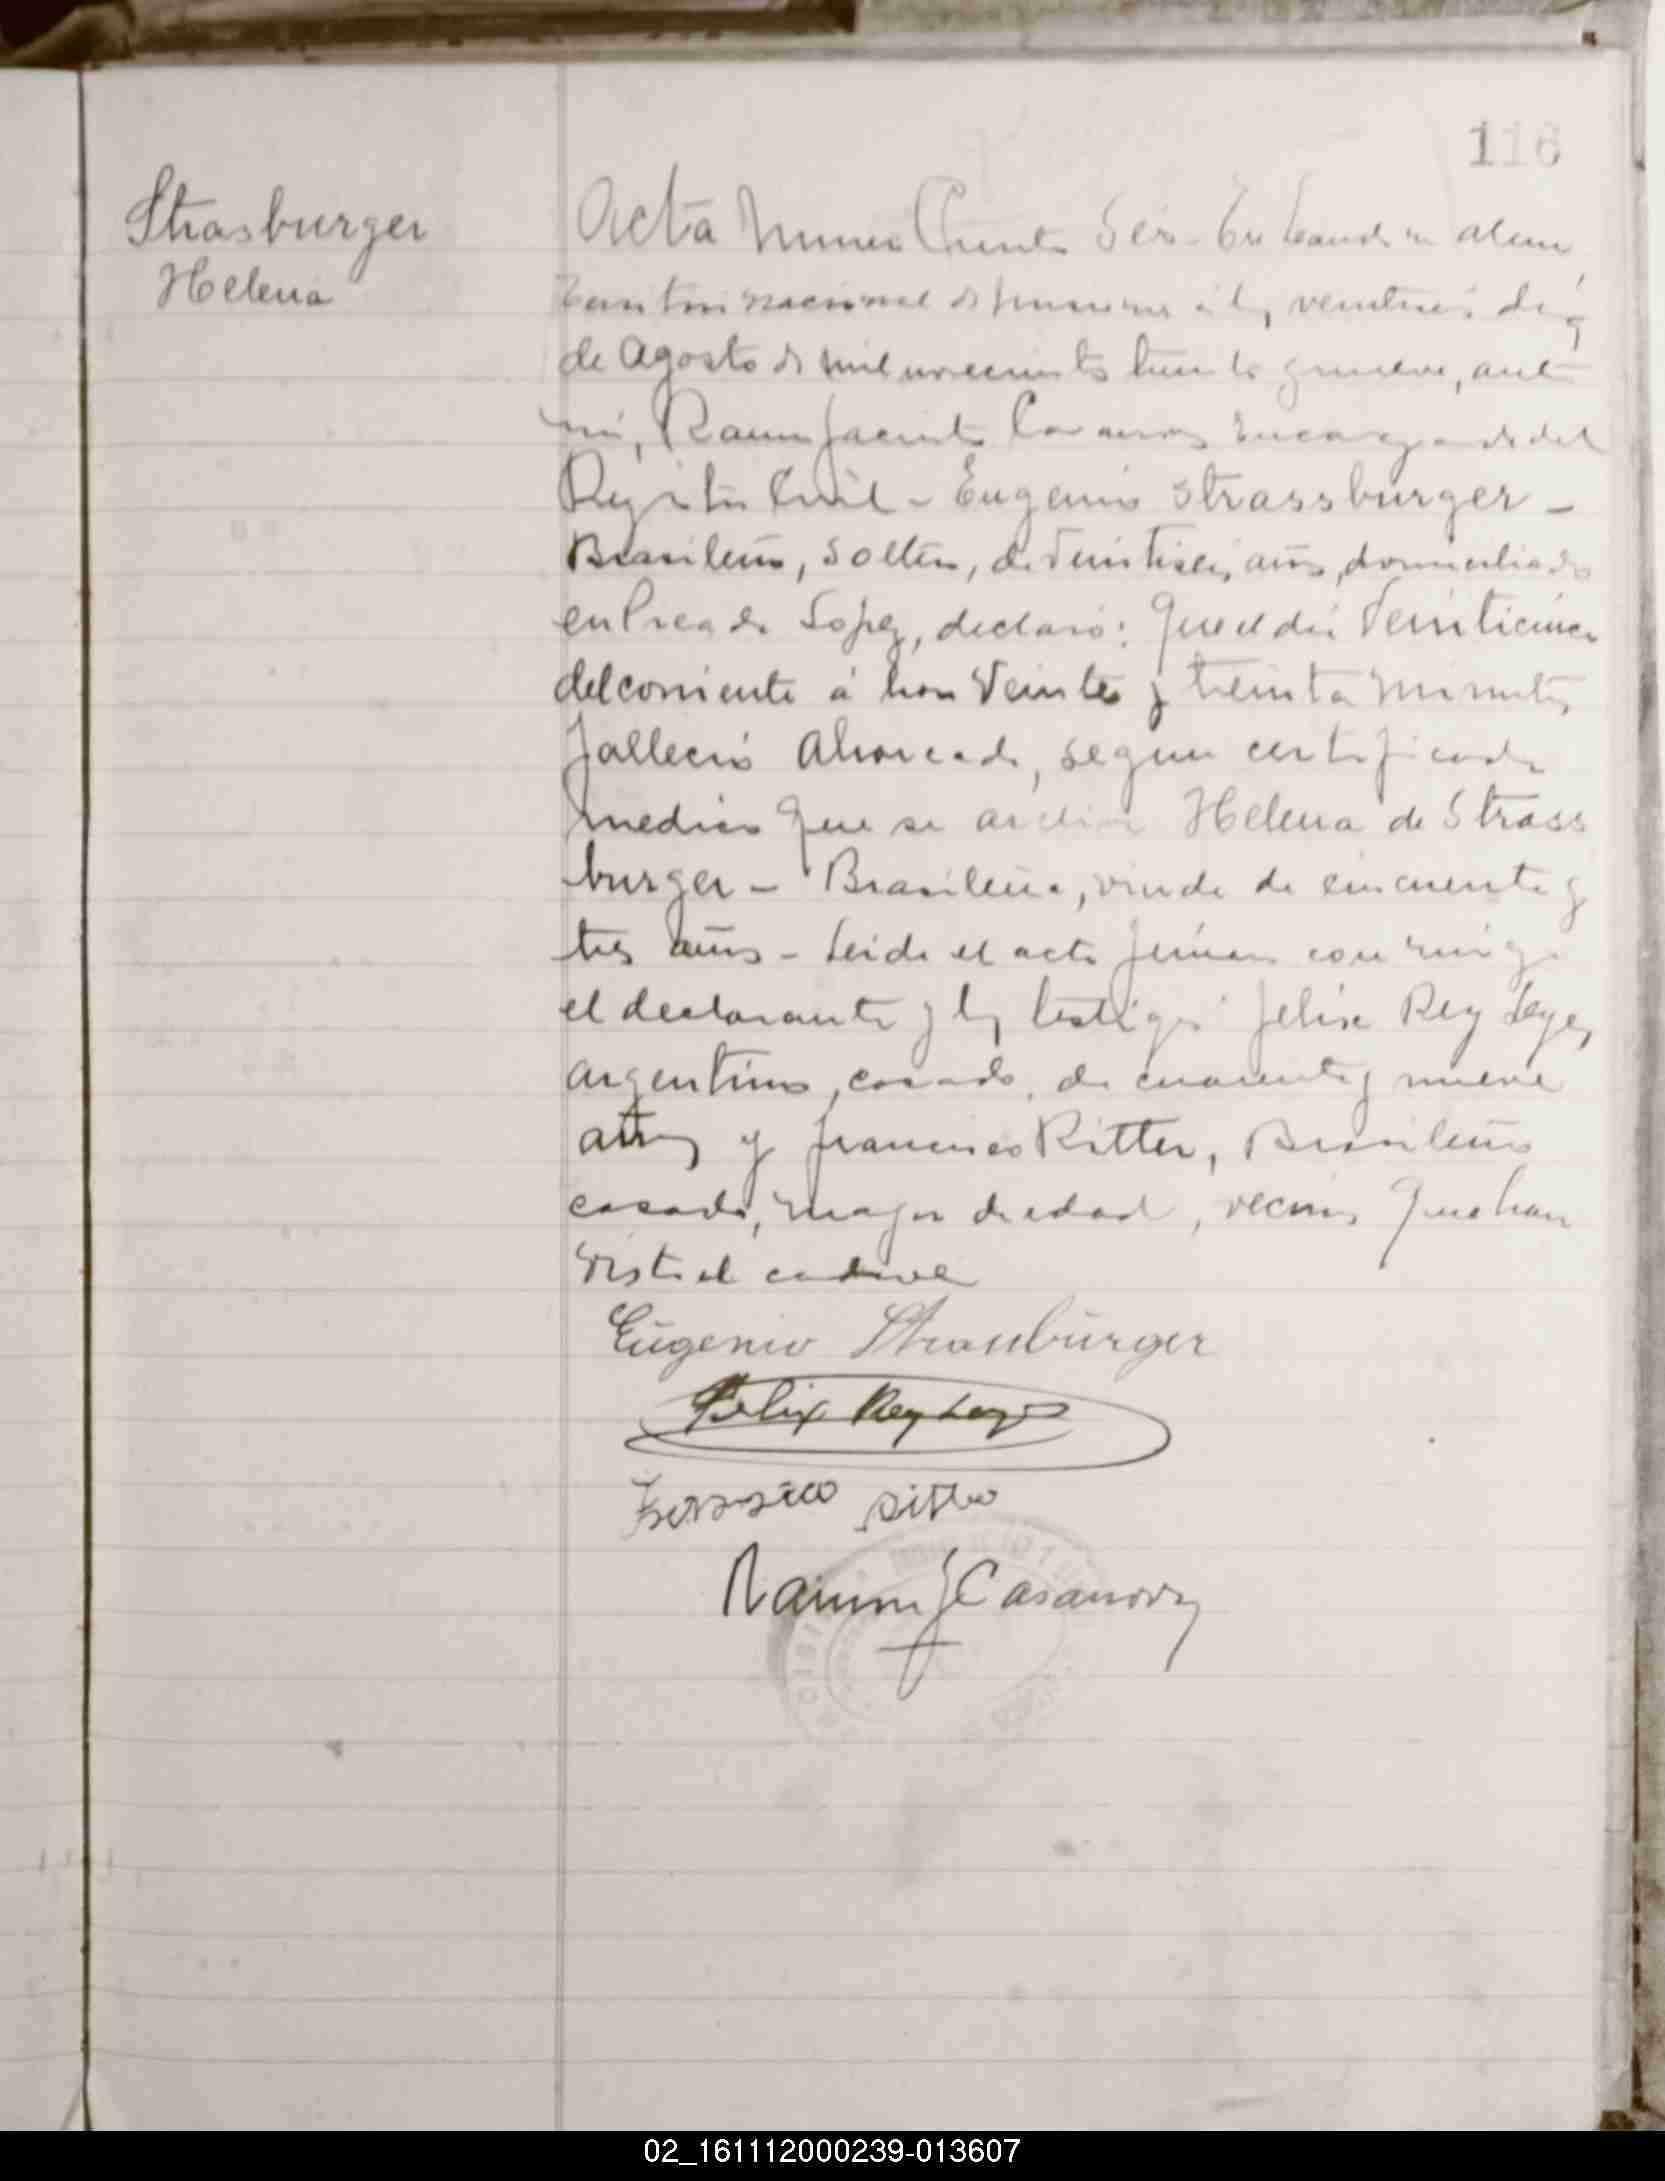 116
Strasburger
Helena
Acta Numero Ciento Seis - En Leandro n alem
Territorio nacional de misiones á los veintiseis dias
de Agosto de mil novecientos treinta y nueve, ante
mi, Ramon Jacinto Casanova encargado del
Registro Civil - Eugenio Strassburger -
Brasileño, soltero, de veintiseis años, domiciliado
en Picada Lopez, declaró: Que el dia veinticinco
del corriente á hora veinte y treinta minutos,
falleció Ahorcada, segun certificado
medico que se archiva Helena de Strass
burger - Brasileña, viuda de cincuenta y
tres años - Leida el acta firman conmigo
el declarante y los testigos Felix Rey Leyes
argentino, casado, de cuarenta y nueve
años y Francisco Ritter, Brasileño
casado, mayor de edad, vecinos que han
visto el cadaver
Eugenio Strassburger
Felix Rey Leyes
Ritter
Ramon J Casanova
02_161112000239-013607